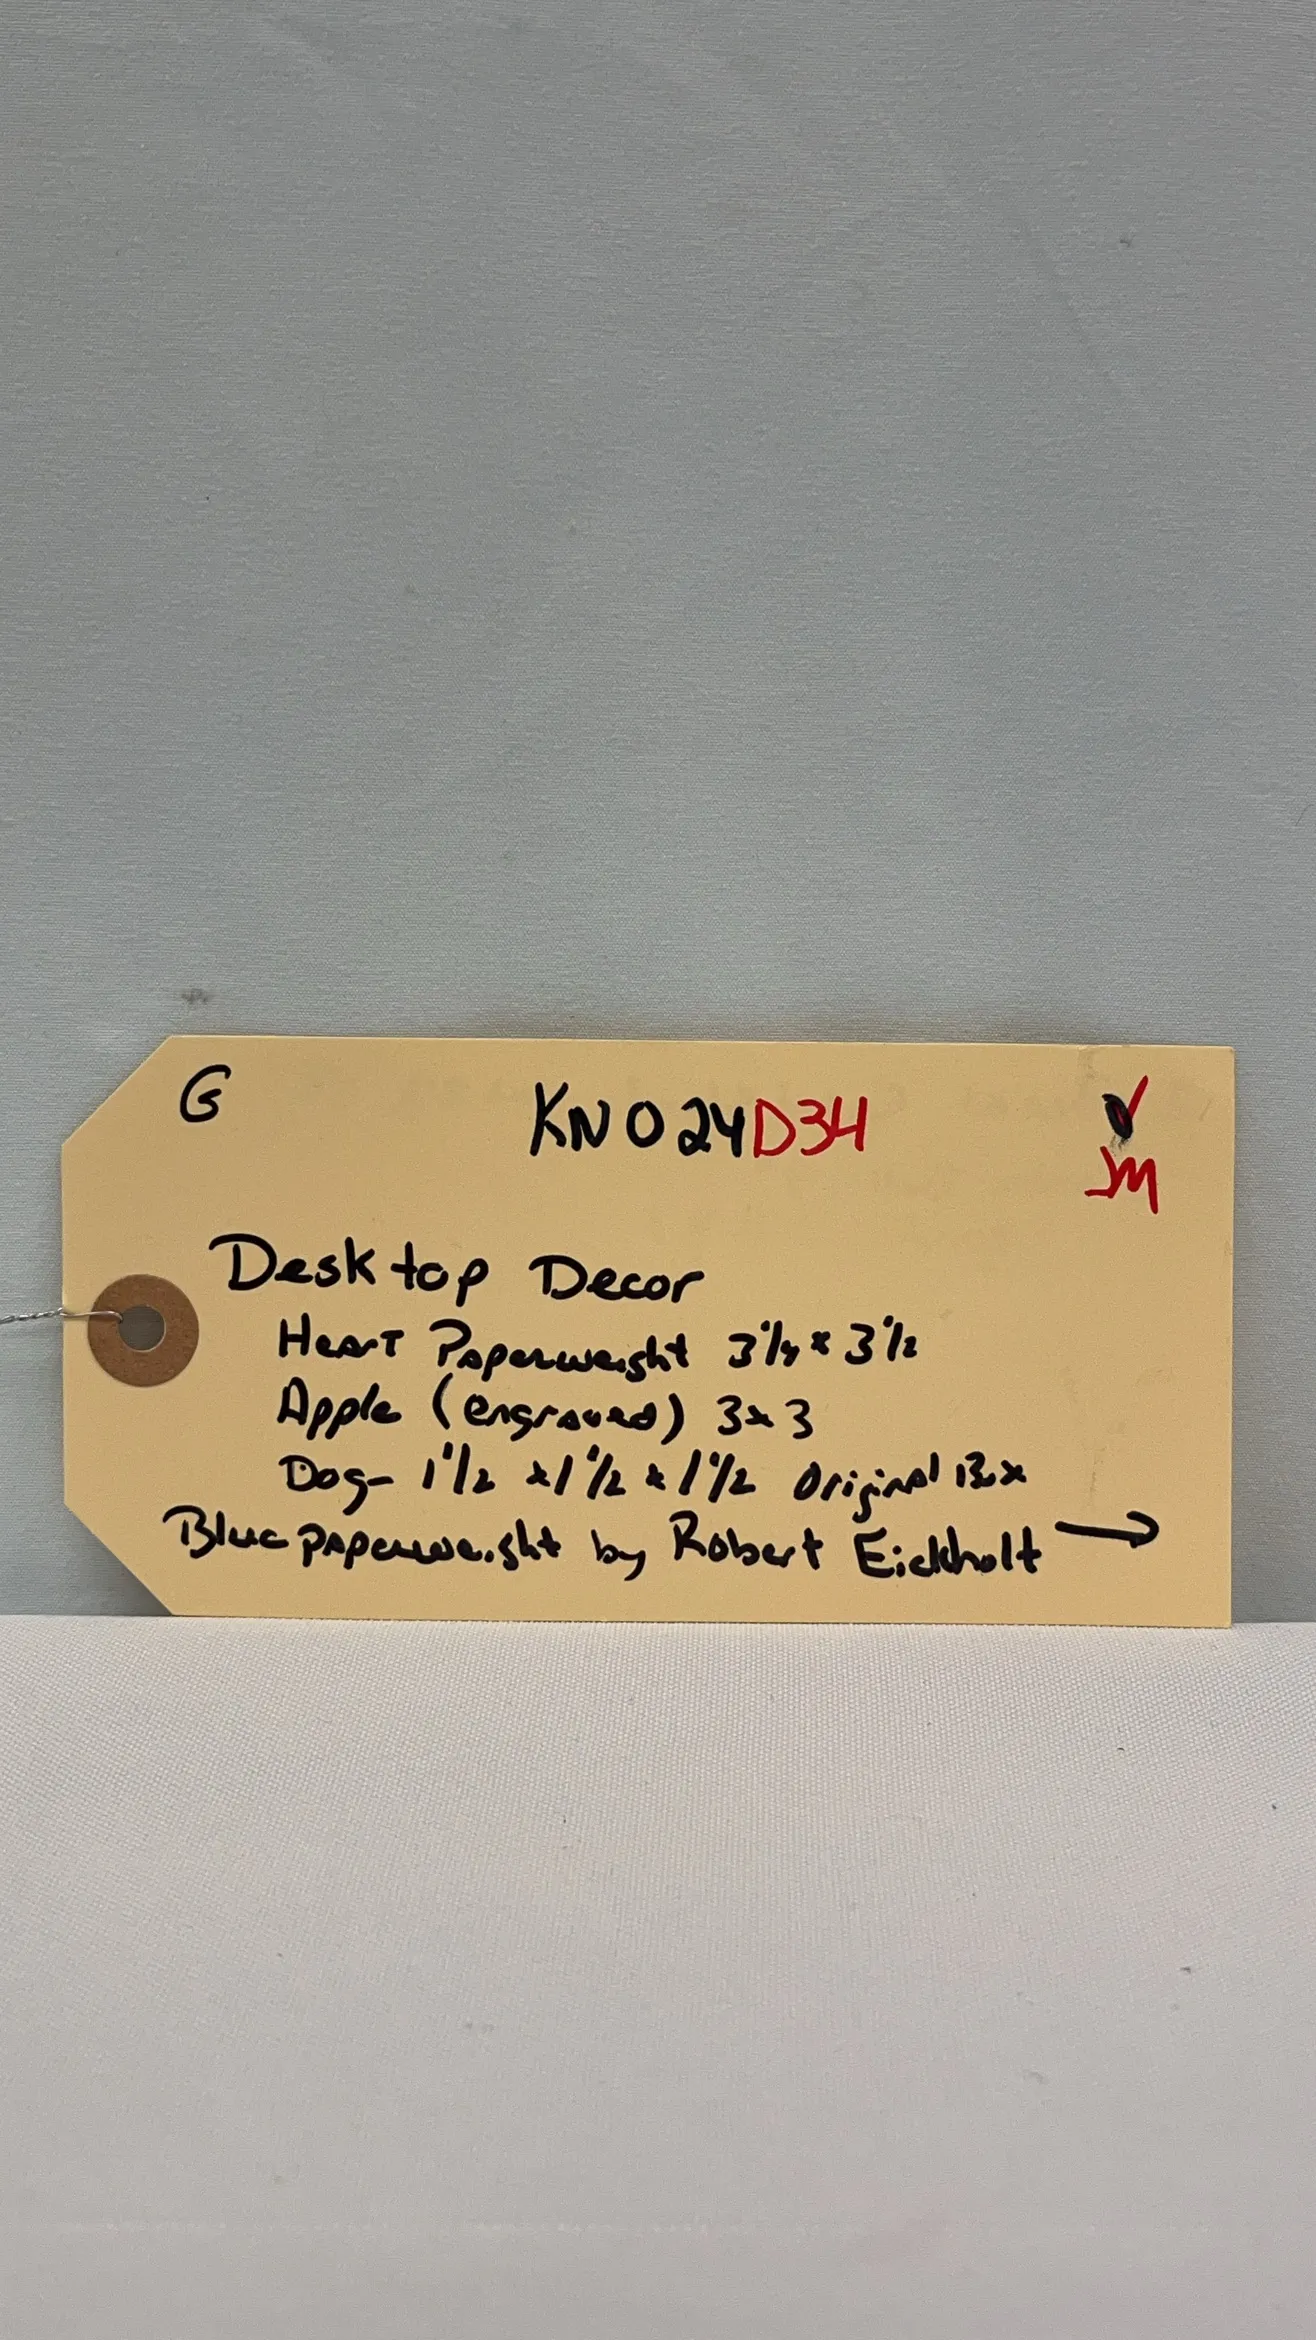 G KNO24D34
JM
Desktop Decor
Heart Paperweight 3 1/4 x 3 1/2
Apple (engraved) 3x3
Dog- 1 1/2 x 1 1/2 x 1 1/2 Original Box
Blue paperweight by Robert Eickholt →